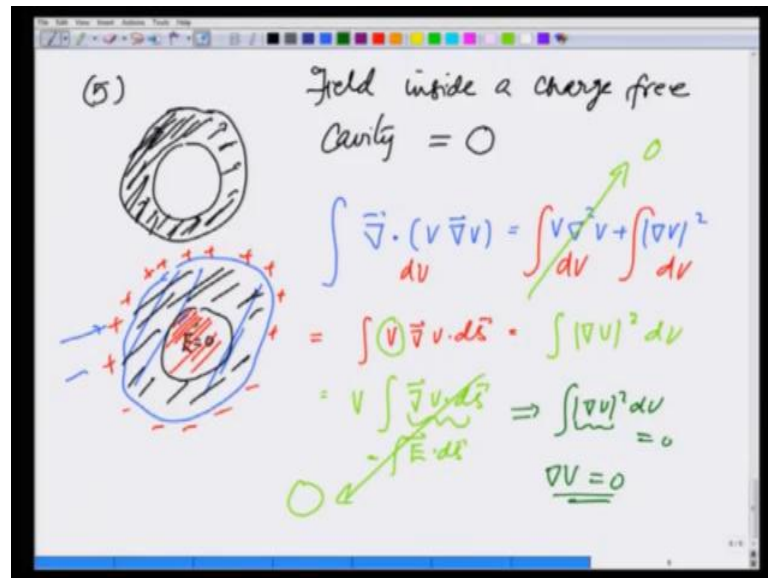 File Edit View Insert Actions Tools Help
(5) Field inside a charge free
Cavity = 0
0
∫ ∇⃗ · (V ∇⃗ V) dV = ∫ V∇²V dV + ∫ |∇V|² dV
= ∫ V ∇⃗ V · ds⃗ = ∫ |∇V|² dV
= V ∫ ∇⃗ V · ds⃗ ⇒ ∫ |∇V|² dV = 0
- ∫ E⃗ · ds⃗
0
∇V = 0
+ + + + + + + + + + + +
E⃗ = 0
- - - - - -